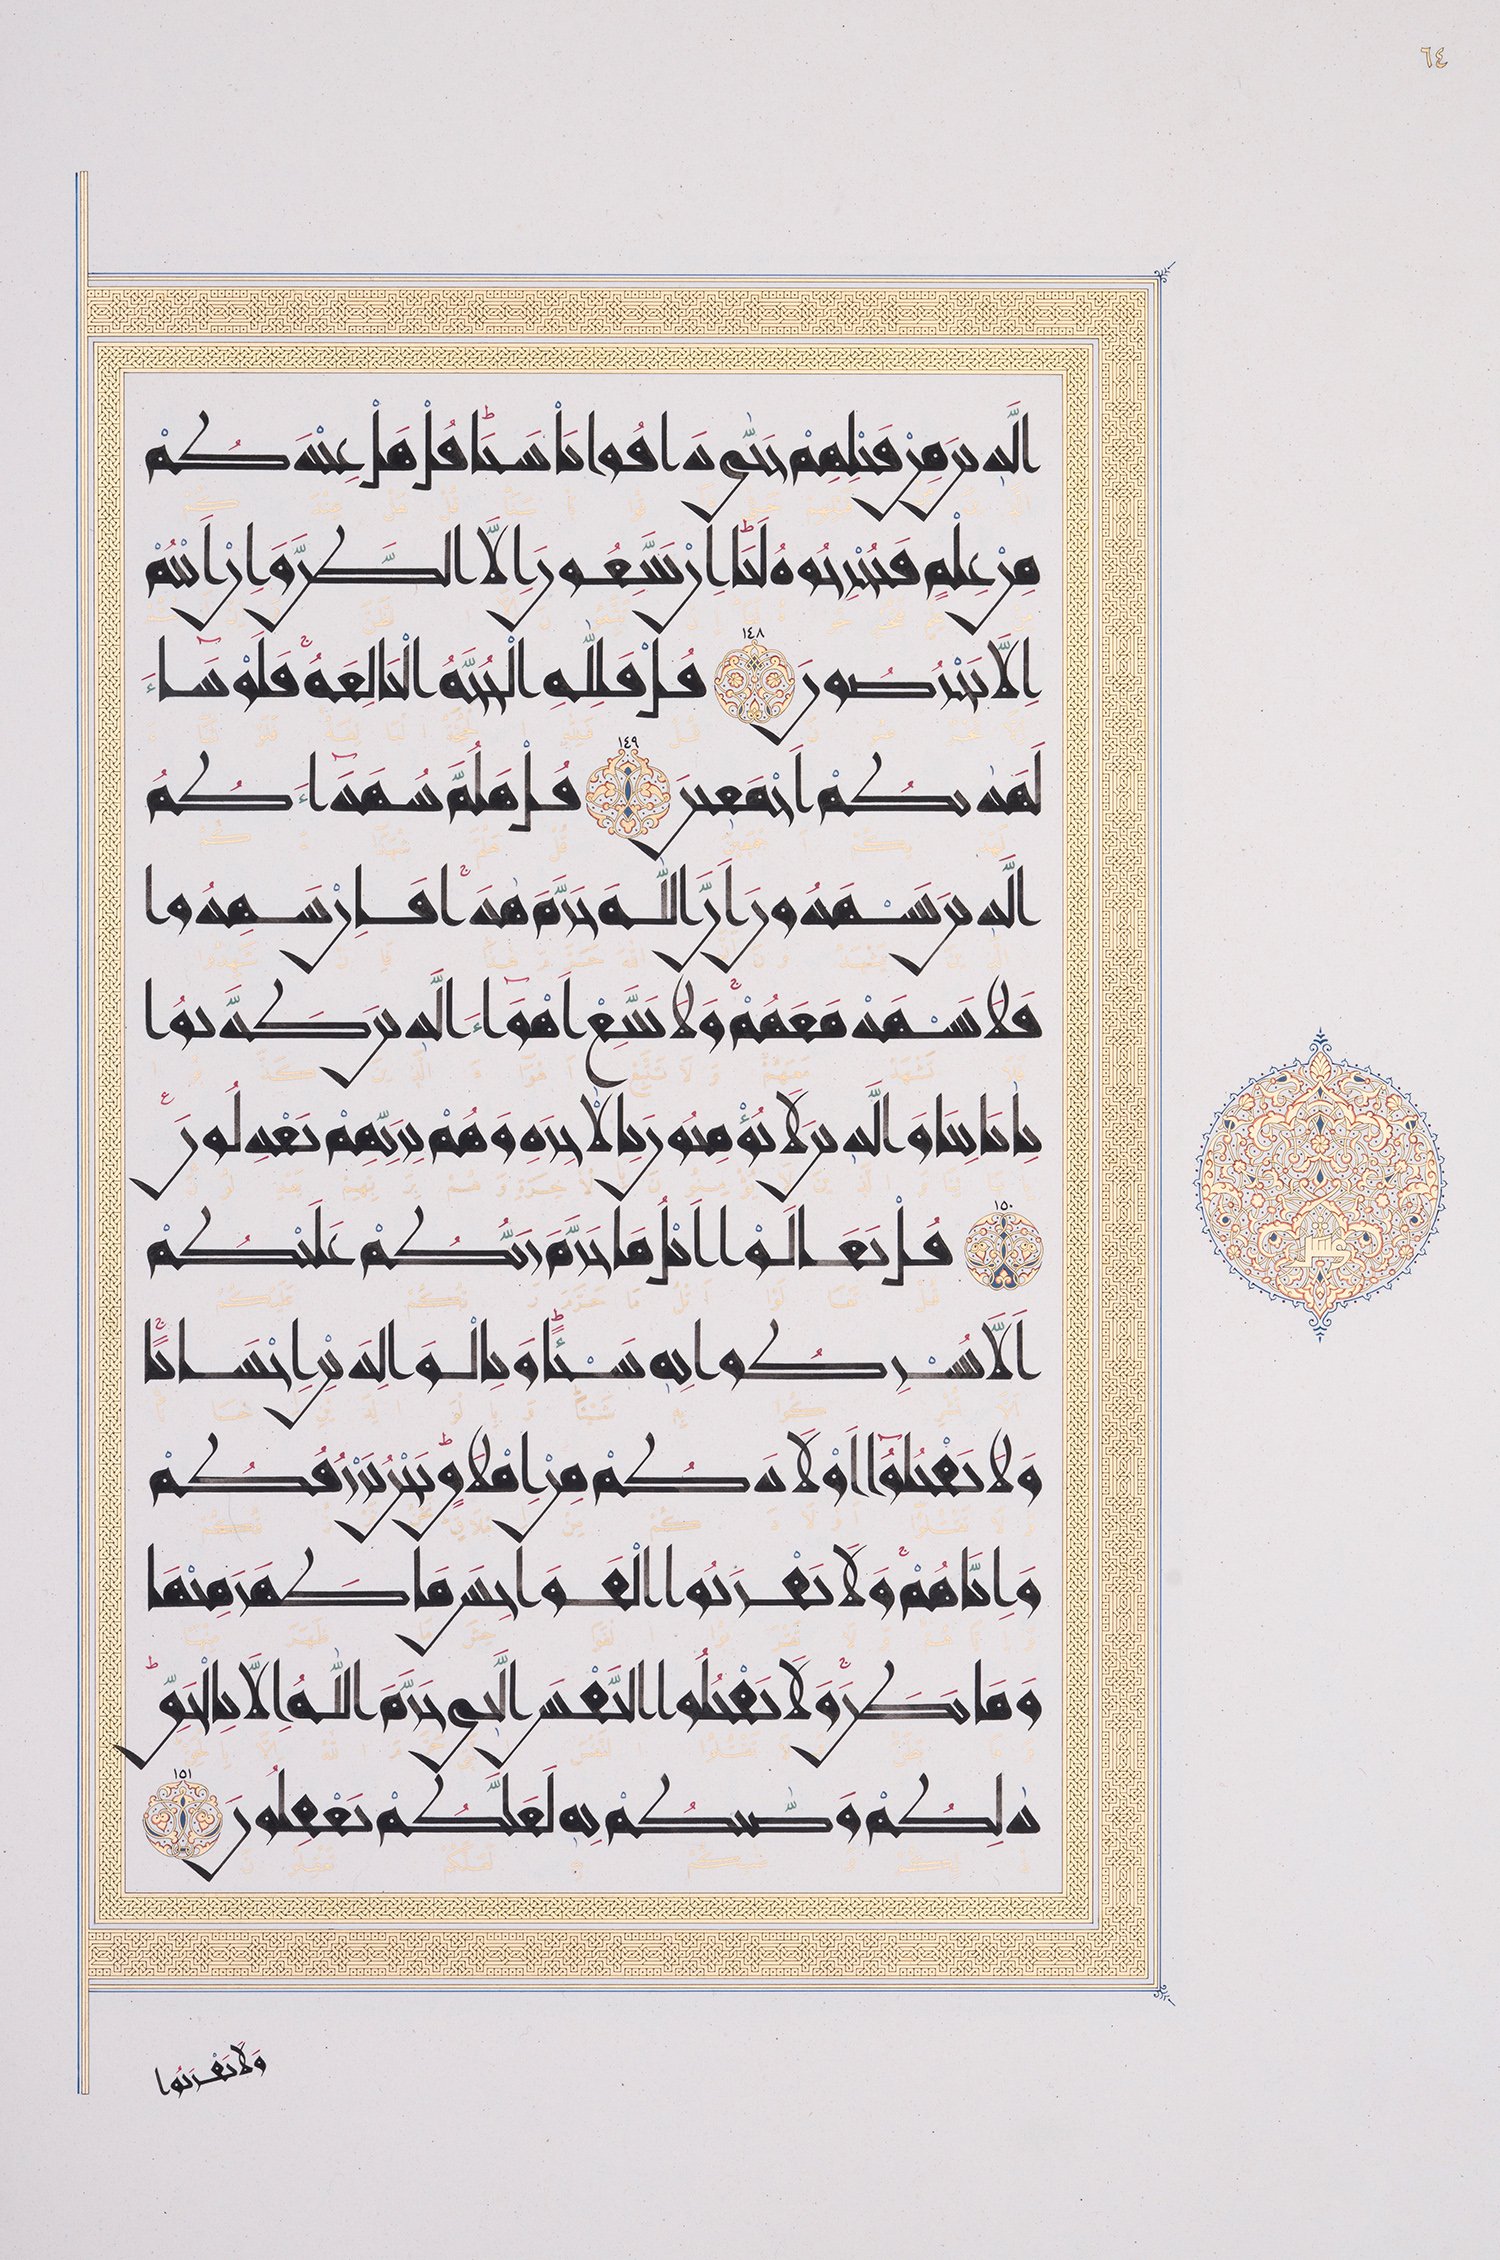 ٦٤
الَّذِينَ مِنْ قَبْلِهِمْ حَتّٰى ذَاقُوا بَأْسَنَاؕ قُلْ هَلْ عِنْدَكُمْ
مِنْ عِلْمٍ فَتُخْرِجُوهُ لَنَاؕ اِنْ تَتَّبِعُونَ اِلَّا الظَّنَّ وَاِنْ اَنْتُمْ
اِلَّا تَخْرُصُونَ ١٤٨ قُلْ فَلِلّٰهِ الْحُجَّةُ الْبَالِغَةُۚ فَلَوْ شَاۤءَ
لَهَدٰيكُمْ اَجْمَعِينَ ١٤٩ قُلْ هَلُمَّ شُهَدَاۤءَكُمُ
الَّذِينَ يَشْهَدُونَ اَنَّ اللّٰهَ حَرَّمَ هٰذَاۚ فَاِنْ شَهِدُوا
فَلَا تَشْهَدْ مَعَهُمْۚ وَلَا تَتَّبِعْ اَهْوَاۤءَ الَّذِينَ كَذَّبُوا
بِاٰيَاتِنَا وَالَّذِينَ لَا يُؤْمِنُونَ بِالْاٰخِرَةِ وَهُمْ بِرَبِّهِمْ يَعْدِلُونَ ع
١٥٠ قُلْ تَعَالَوْا اَتْلُ مَا حَرَّمَ رَبُّكُمْ عَلَيْكُمْ
اَلَّا تُشْرِكُوا بِهِ شَيْـًٔاؕ وَبِالْوَالِدَيْنِ اِحْسَانًاۚ
وَلَا تَقْتُلُوۤا اَوْلَادَكُمْ مِنْ اِمْلَاقٍؕ نَحْنُ نَرْزُقُكُمْ
وَاِيَّاهُمْۚ وَلَا تَقْرَبُوا الْفَوَاحِشَ مَا ظَهَرَ مِنْهَا
وَمَا بَطَنَۚ وَلَا تَقْتُلُوا النَّفْسَ الَّتِي حَرَّمَ اللّٰهُ اِلَّا بِالْحَقِّؕ
ذٰلِكُمْ وَصّٰيكُمْ بِهِ لَعَلَّكُمْ تَعْقِلُونَ ١٥١
عشر
وَلَا تَقْرَبُوا